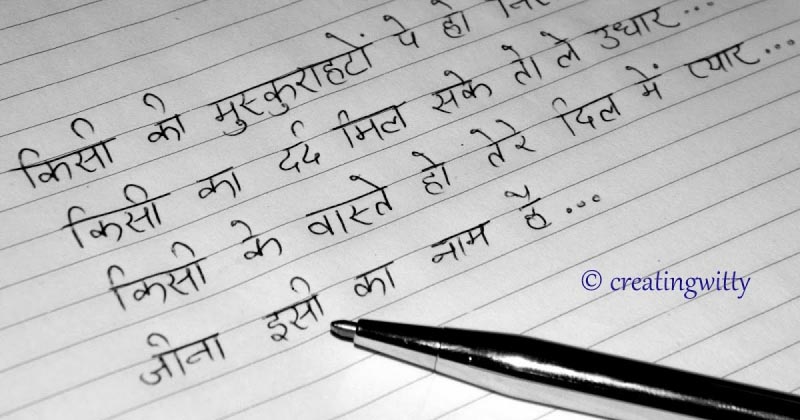 किसी की मुस्कुराहटों पे हो
किसी का दर्द मिल सके तो ले उधार...
किसी के वास्ते हो तेरे दिल में प्यार...
जीना इसी का नाम है...
© creatingwitty